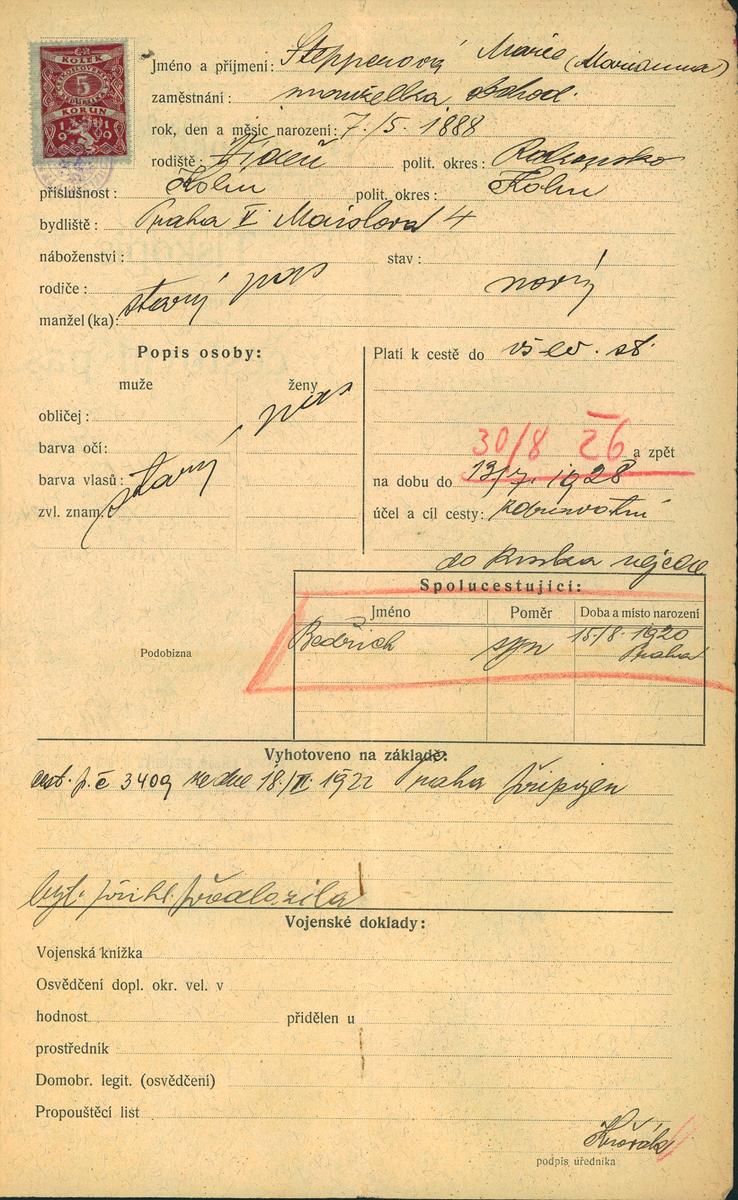 KOLEK
5
KORUN
1919
Jméno a příjmení: Stepperová Marie (Marianna)
zaměstnání: manželka obchod.
rok, den a měsíc narození: 7./5. 1888
rodiště: Vídeň polit. okres: Rakousko
příslušnost: Kolín polit. okres: Kolín
bydliště: Praha V. Maislova 4
náboženství: stav:
rodiče: starý pas nový
manžel (ka):
Popis osoby: Platí k cestě do vš. ev. st.
muže ženy
obličej: pas
barva očí: 30/8 26 a zpět
barva vlasů: starý na dobu do 13/7. 1928
zvl. znam. účel a cíl cesty: zdravotní
do
Spolucestující:
Jméno Poměr Doba a místo narození
Bedřich syn 15./8. 1920
Praha
Podobizna
Vyhotoveno na základě:
cest. p. č 3409 ze dne 18./II. 1922 Praha připojen
byt. přihl. předložila
Vojenské doklady:
Vojenská knížka
Osvědčení dopl. okr. vel. v
hodnost přidělen u
prostředník
Domobr. legit. (osvědčení)
Propouštěcí list
podpis úředníka